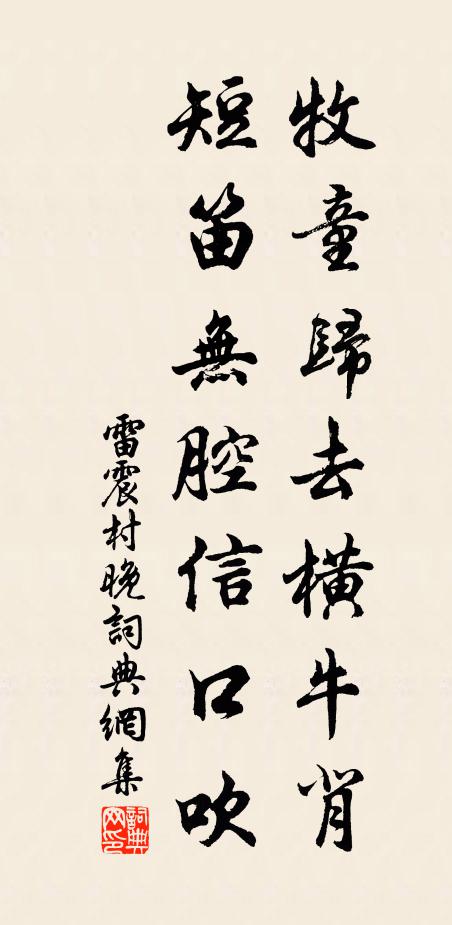 牧童歸去橫牛背
短笛無腔信口吹
雷震村晚詞典網集
詞典網印